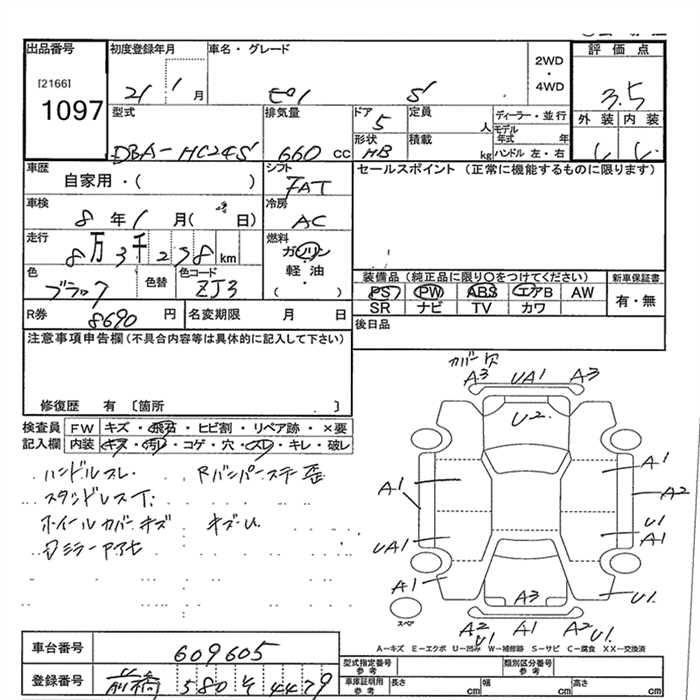 出品番号 初度登録年月 車名・グレード 2WD・4WD 評価点
[2166]
1097
21 1月 ピノ S 3.5
型式 排気量 ドア 定員 ディーラー・並行 外装 内装
5 人 モデル年式 年
DBA-HC24S 660 CC 形状 HB 積載 kg ハンドル 左・右
車歴 シフト セールスポイント (正常に機能するものに限ります)
自家用・( ) FAT
車検 冷房
8年1月( 日) AC
走行 燃料
8万3千238km ガソリン
軽油
( )
色 色替 色コード 装備品(純正品に限り○をつけてください) 新車保証書
ブラック ZJ3 PS PW ABS エアB AW 有・無
SR ナビ TV カワ
R券 8690円 名変期限 月 日 後日品
注意事項申告欄(不具合内容等は具体的に記入して下さい)
修復歴 有 〔箇所 〕
検査員 FW キズ・飛石・ヒビ割・リペア跡・×要
記入欄 内装 キズ・汚レ・コゲ・穴・スレ・キレ・破レ
ハンドルスレ Rバンパーステー歪
スタッドレスT
ホイールカバーキズ キズ・U
カバー欠
A3 UA1 A3
U2
A1 A1
A2
UA1 U1
A1
A1 A3 U1
スペア
A2 U1 A1 A2 U1
A-キズ E-エクボ U-凹み W-補修跡 S-サビ C-腐食 XX-交換済
車台番号 609605
型式指定番号 参考 類別区分番号 参考
登録番号 前橋 580 そ 4479
車庫証明用 参考 長さ cm 幅 cm 高さ cm